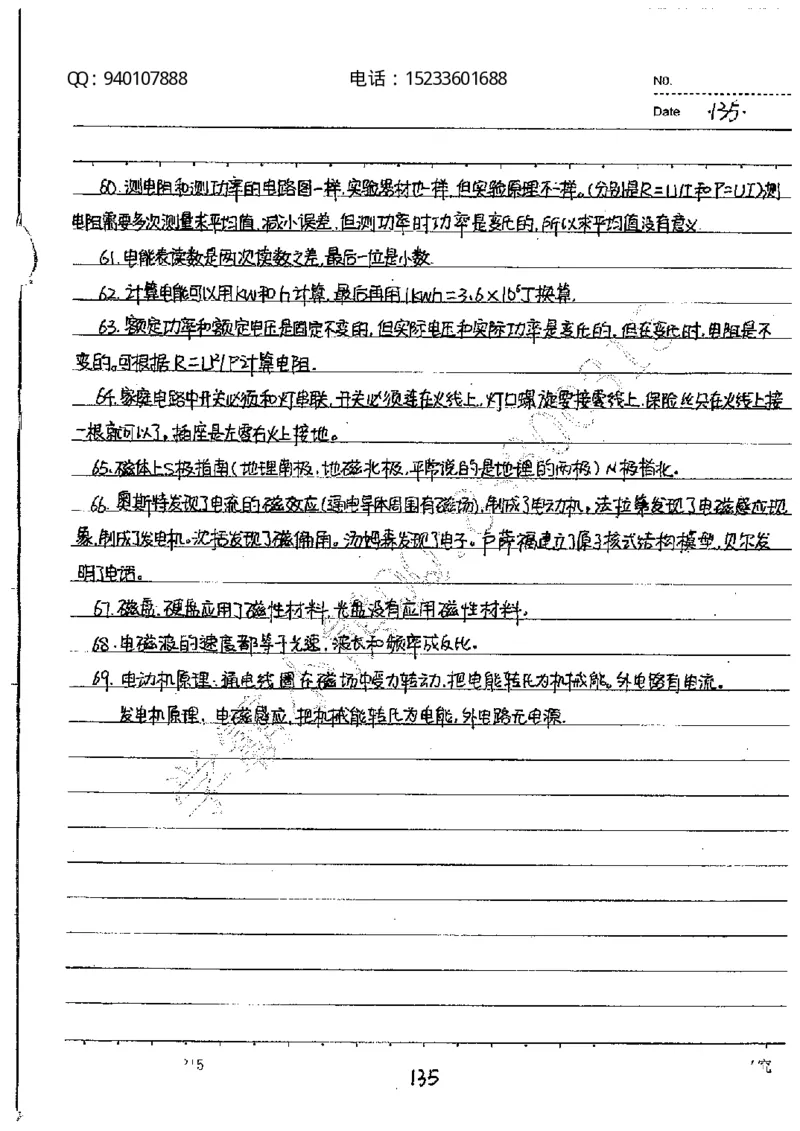 QQ：940107888 电话：15233601688 No.
Date ·135·
60.测电阻和测功率的电路图一样,实验器材也一样,但实验原理不一样。(分别是R=U/I和P=UI)测
电阻需要多次测量求平均值,减小误差,但测功率时功率是变化的,所以求平均值没有意义.
61.电能表读数是两次读数之差,最后一位是小数.
62.计算电能可以用kw和h计算,最后再用1kwh=3.6×10⁶J换算.
63.额定功率和额定电压是固定不变的,但实际电压和实际功率是变化的,但在变化时,电阻是不
变的。可根据R=U²/P计算电阻.
64.家庭电路中开关必须和灯串联,开关必须连在火线上,灯口螺旋要接零线上,保险丝只在火线上接
一根就可以了,插座是左零右火上接地。
65.磁体上S极指南(地理南极,地磁北极,平常说的是地理的两极)N极指北。
66.奥斯特发现了电流的磁效应(通电导体周围有磁场),制成了电动机,法拉第发现了电磁感应现
象,制成了发电机。沈括发现了磁偏角。汤姆森发现了电子。卢萨福建立了原子核式结构模型,贝尔发
明了电话。
67.磁盘、硬盘应用了磁性材料,光盘没有应用磁性材料.
68.电磁波的速度都等于光速,波长和频率成反比。
69.电动机原理:通电线圈在磁场中受力转动,把电能转化为机械能。外电路有电流。
发电机原理、电磁感应,把机械能转化为电能,外电路无电源.
学霸
135